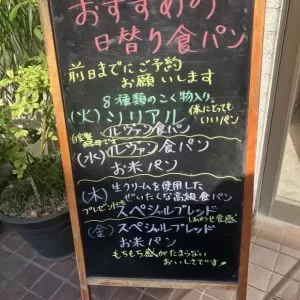 おすすめの
日替り食パン
前日までにご予約
お願いします
8種類のこく物入り
(火) シリアル 体にとても
いいパン
自家製
酵母で
ルヴァン食パン
(水) ルヴァン食パン
お米パン
(木) 生クリームを使用した
ぜいたくな高級食パン
プレゼントにも
スペシャルブレッド
しあわせ食感
(金) スペシャルブレッド
お米パン
もちもち感がたまらない
おいしさです!